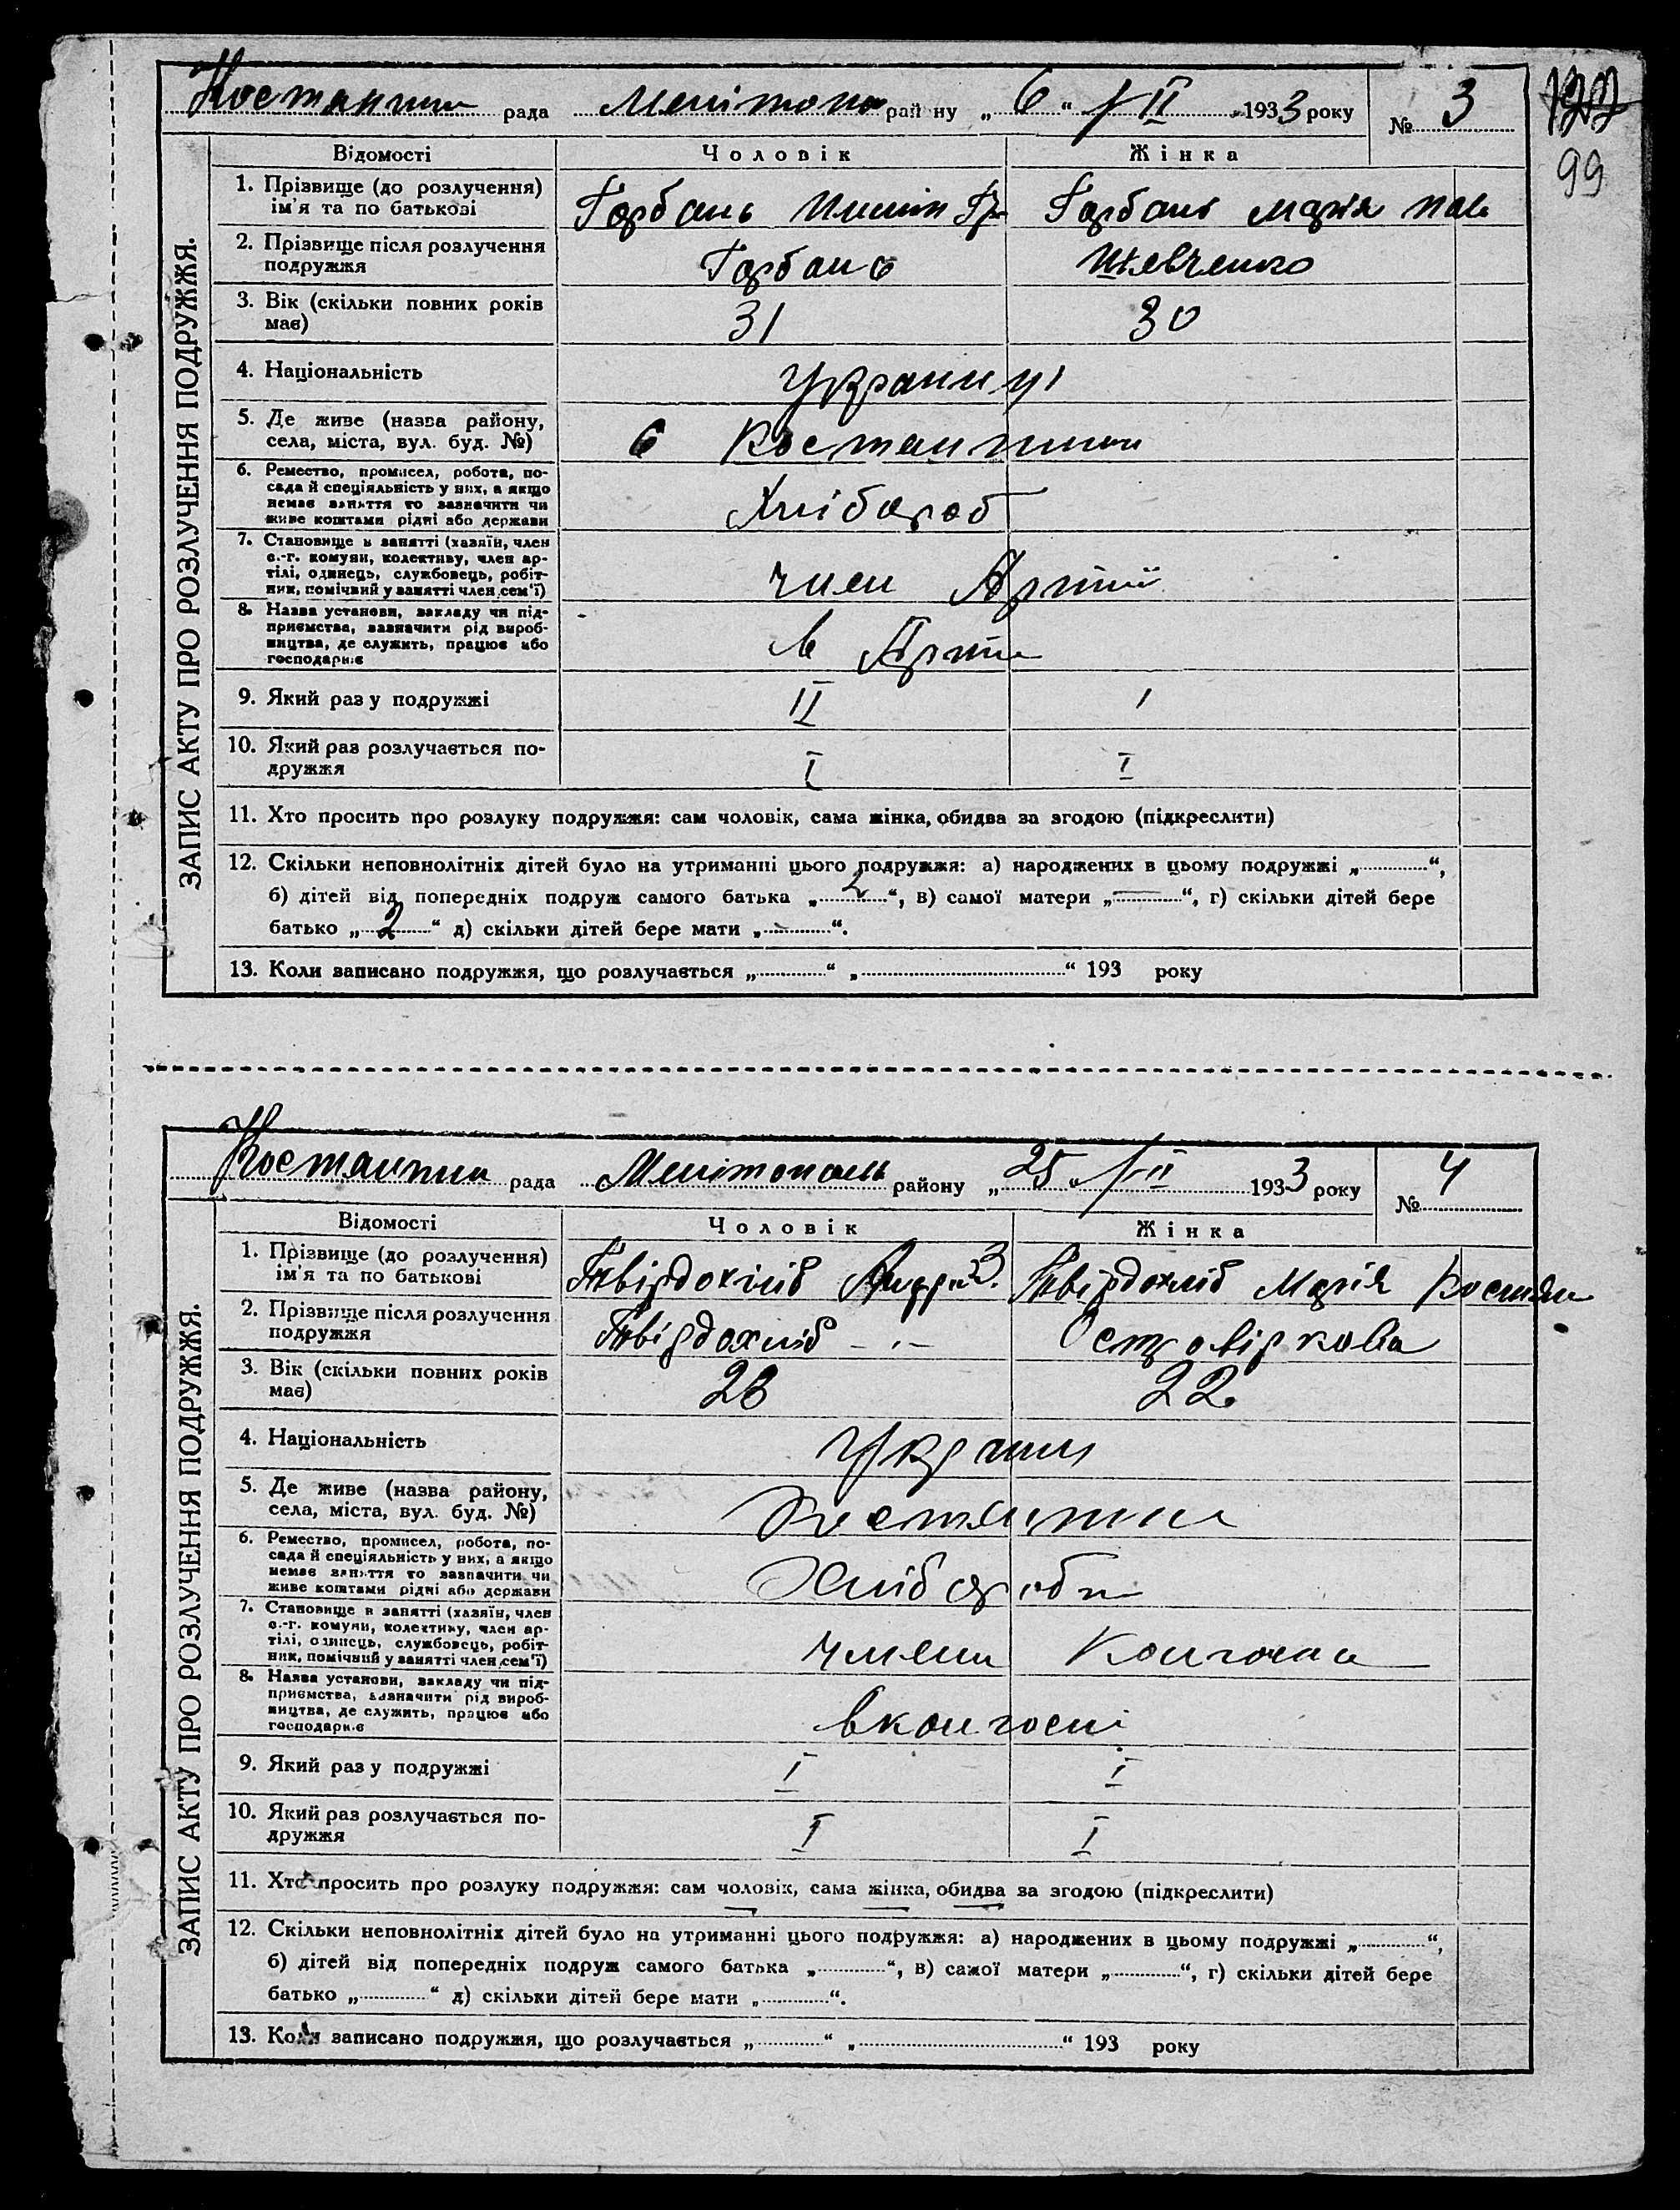 Костантин рада Мелітопол району „6“ VII 1933 року № 3
99
ЗАПИС АКТУ ПРО РОЗЛУЧЕННЯ ПОДРУЖЖЯ.
Відомості Чоловік Жінка
1. Прізвище (до розлучення) ім'я та по батькові Горбань Гр Горбань Марія Пав
2. Прізвище після розлучення подружжя Горбань Шевченко
3. Вік (скільки повних років має) 31 30
4. Національність Українці
5. Де живе (назва району, села, міста, вул. буд. №) с Костантин
6. Ремество, промисел, робота, посада й спеціяльність у них, а якщо немає заняття то зазначити чи живе коштами рідні або держави Хлібороб
7. Становище в занятті (хазяїн, член с.-г. комуни, колективу, член артілі, одинець, службовець, робітник, помічний у занятті член сем'ї) член Артілі
8. Назва установи, закладу чи підприємства, зазначити рід виробництва, де служить, працює або господарює в Артіл
9. Який раз у подружжі II I
10. Який раз розлучається подружжя I I
11. Хто просить про розлуку подружжя: сам чоловік, сама жінка, обидва за згодою (підкреслити)
12. Скільки неповнолітніх дітей було на утриманні цього подружжя: а) народжених в цьому подружжі „ “,
б) дітей від попередніх подруж самого батька „2“, в) самої матери „—“, г) скільки дітей бере
батько „2“ д) скільки дітей бере мати „—“.
13. Коли записано подружжя, що розлучається „ “ „ “ 193 року
Костантин рада Мелітополь району „25“ VII 1933 року № 4
ЗАПИС АКТУ ПРО РОЗЛУЧЕННЯ ПОДРУЖЖЯ.
Відомості Чоловік Жінка
1. Прізвище (до розлучення) ім'я та по батькові Твірдохліб Андрій З. Твірдохліб Марія Костян
2. Прізвище після розлучення подружжя Твірдохліб –"– Остовіркова
3. Вік (скільки повних років має) 23 22
4. Національність
5. Де живе (назва району, села, міста, вул. буд. №) Костянтин
6. Ремество, промисел, робота, посада й спеціяльність у них, а якщо немає заняття то зазначити чи живе коштами рідні або держави Хлібороби
7. Становище в занятті (хазяїн, член с.-г. комуни, колективу, член артілі, одинець, службовець, робітник, помічний у занятті член сем'ї) члени Колгоспа
8. Назва установи, закладу чи підприємства, зазначити рід виробництва, де служить, працює або господарює в колгоспі
9. Який раз у подружжі I I
10. Який раз розлучається подружжя I I
11. Хто просить про розлуку подружжя: сам чоловік, сама жінка, обидва за згодою (підкреслити)
12. Скільки неповнолітніх дітей було на утриманні цього подружжя: а) народжених в цьому подружжі „ “,
б) дітей від попередніх подруж самого батька „ “, в) самої матери „ “, г) скільки дітей бере
батько „ “ д) скільки дітей бере мати „ “.
13. Коли записано подружжя, що розлучається „ “ „ “ 193 року